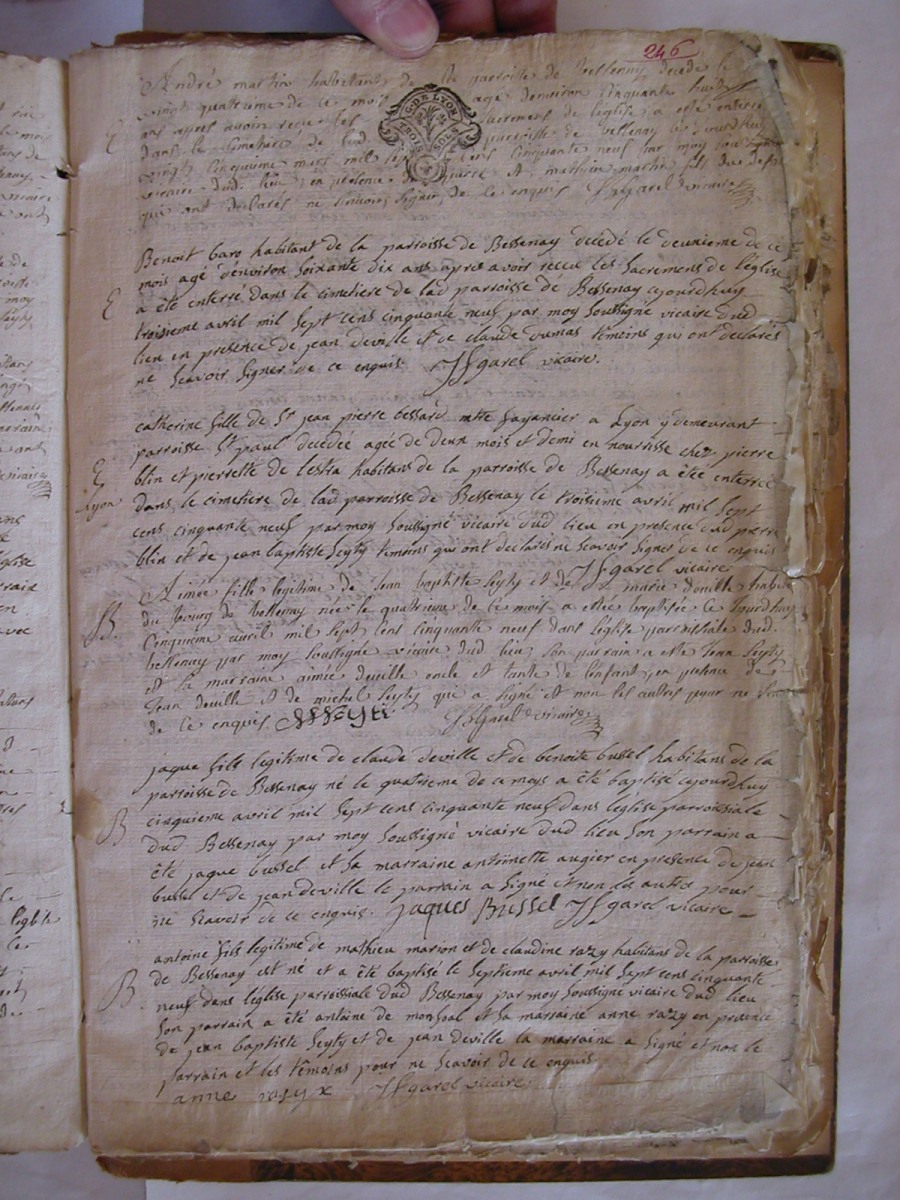 246
André martin habitant de la parroisse de bessenay décédé le
vingt quatrieme de ce mois agé denviron cinquante huit
ans apres avoir reçu les sacremens de l'église, a esté enterré
dans le cimetiere de lad parroisse de bessenay ce jourdhuy
vingt cinquieme mars mil sept cens cinquante neuf par moy soussigné
vicaire dud. lieu, en présence de pierre et mathieu martin fils du defunt
qui ont déclarés ne scavoir signer de ce enquis JfGarel vicaire
G. DE LYON
TROIS
SOLS DEN
E
Benoit baro habitant de la parroisse de Bessenay décédé le deuxieme de ce
mois agé d'environ soixante dix ans apres avoir receu les sacremens de l'église
a été enterré dans le cimetiere de lad parroisse de Bessenay cejourdhuy
troisieme avril mil sept cens cinquante neuf par moy soussigné vicaire dud
lieu en presence de jean deville et de claude dumas témoins qui ont déclarés
ne scavoir signer de ce enquis. Jfgarel vicaire.
E
Lyon
catherine fille de Sr jean pierre bessard mtre fayancier a Lyon y demeurant
parroisse St paul décédée agée de deux mois et demi en nourrisse chez pierre
blin et pierrette de lestra habitans de la parroisse de Bessenay a été enterrée
dans le cimetiere de lad parroisse de Bessenay le troisieme avril mil sept
cens cinquante neuf par moy soussigné vicaire dud lieu en presence dud pierre
blin et de jean baptiste seyty temoins qui ont déclarés ne scavoir signer de ce enquis
Jfgarel vicaire
B.
Aimée fille legitime de Jean baptiste seyty et de marie deville habitans
du bourg de bessenay née le quatrieme de ce mois a estée baptisée ce jourdhuy
cinquieme avril mil sept cens cinquante neuf dans l'église parroissiale dud.
bessenay par moy soussigné vicaire dud lieu, son parrain a esté Jean seyty
et la marraine aimée deville oncle et tante de l'enfant, en présence de
Jean deville et de michel seyty qui a signé et non les autres pour ne scavoir
de ce enquis. JfGarel vicaire
B
jaque fils legitime de claude deville et de benoite bussel habitans de la
parroisse de Bessenay né le quatrieme de ce moys a été baptisé cejourdhuy
cinquieme avril mil sept cens cinquante neuf dans l'église parroissiale
dud Bessenay par moy soussigné vicaire dud lieu son parrain a
été jaque bussel et sa marraine antoinette augier en presence de jean
bussel et de jean deville le parrain a signé et non les autres pour
ne scavoir de ce enquis. Jaques Bussel Jfgarel vicaire
B
antoine fils légitime de mathieu marion et de claudine razy habitans de la parroisse
de Bessenay est né et a été baptisé le septieme avril mil sept cens cinquante
neuf dans l'église parroissiale dud Bessenay par moy soussigné vicaire dud lieu
son parrain a été antoine de monsoal et sa marraine anne razy en presence
de jean baptiste seyty et de jean deville la marraine a signé et non le
parrain et les témoins pour ne scavoir de ce enquis
anne rasy x Jfgarel vicaire